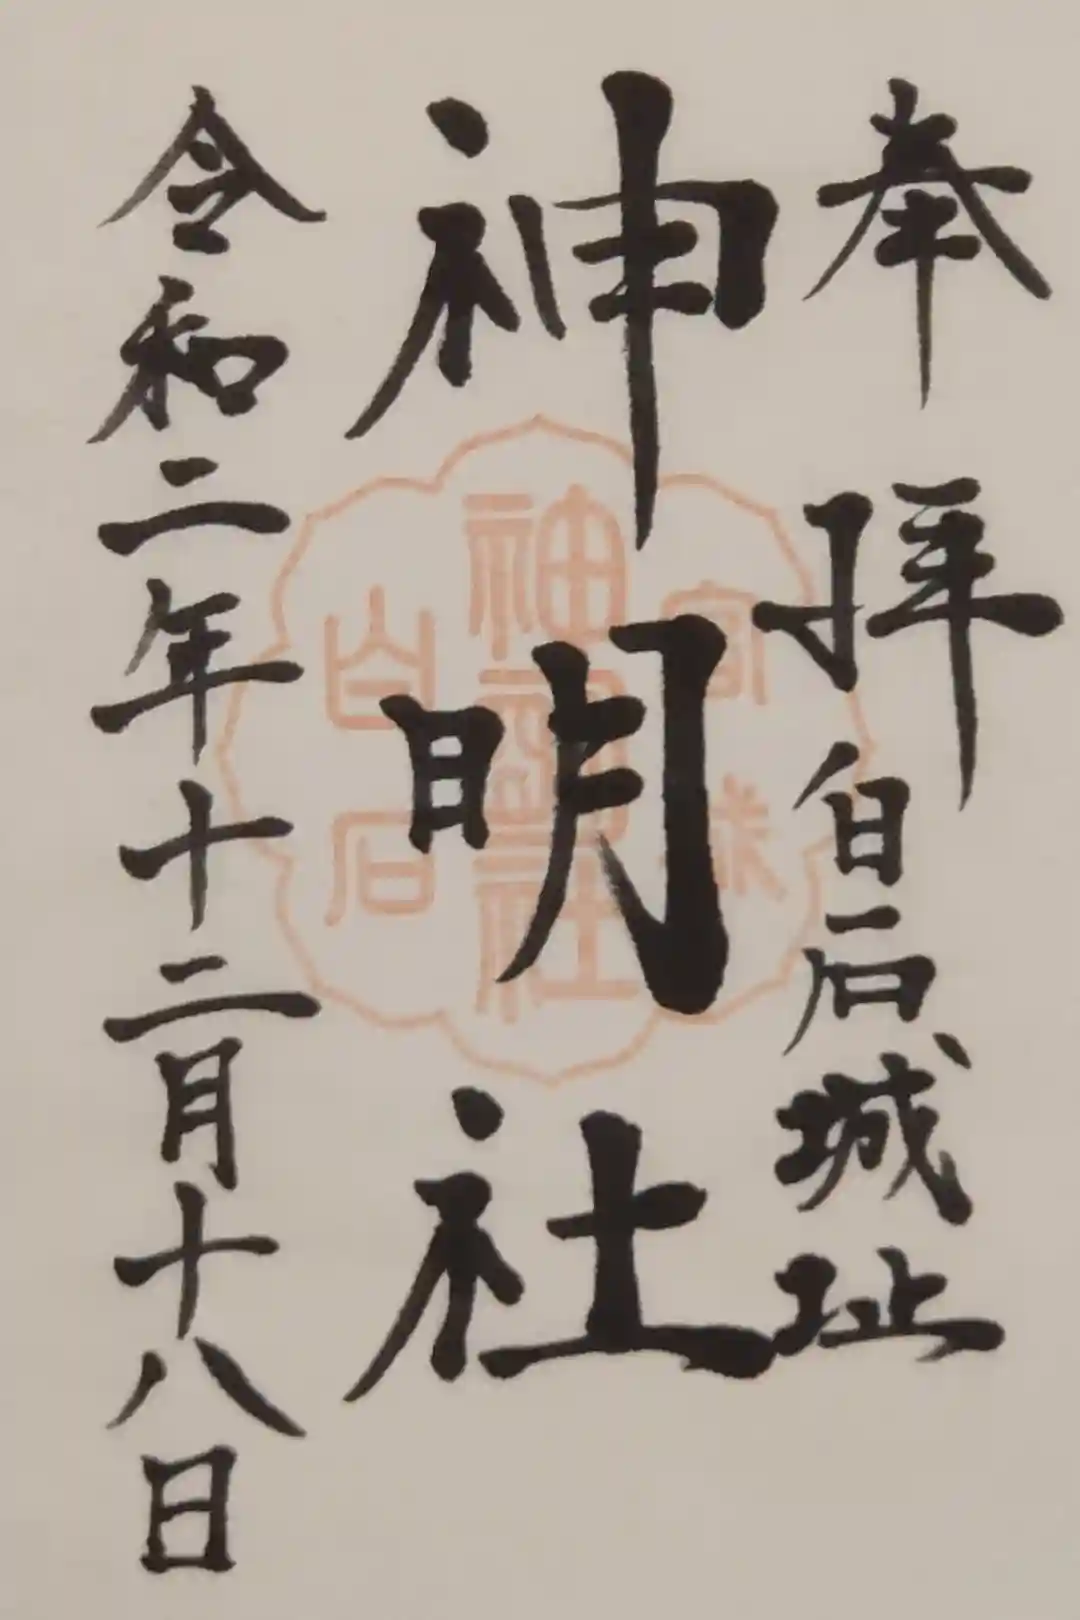 奉拝 白石城址
神明社
令和二年十二月十八日
宮城
神明社
白石